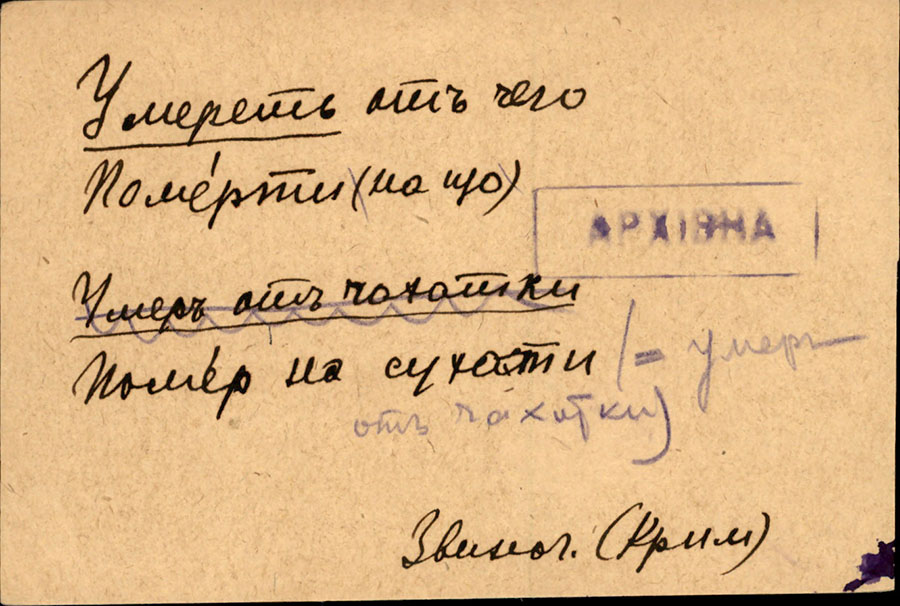 Умереть отъ чего
Поме́рти (на що)
АРХІВНА
Умеръ отъ чахотки
Поме́р на сухоти (= умеръ
отъ чахотки)
Звиног. (Крим)